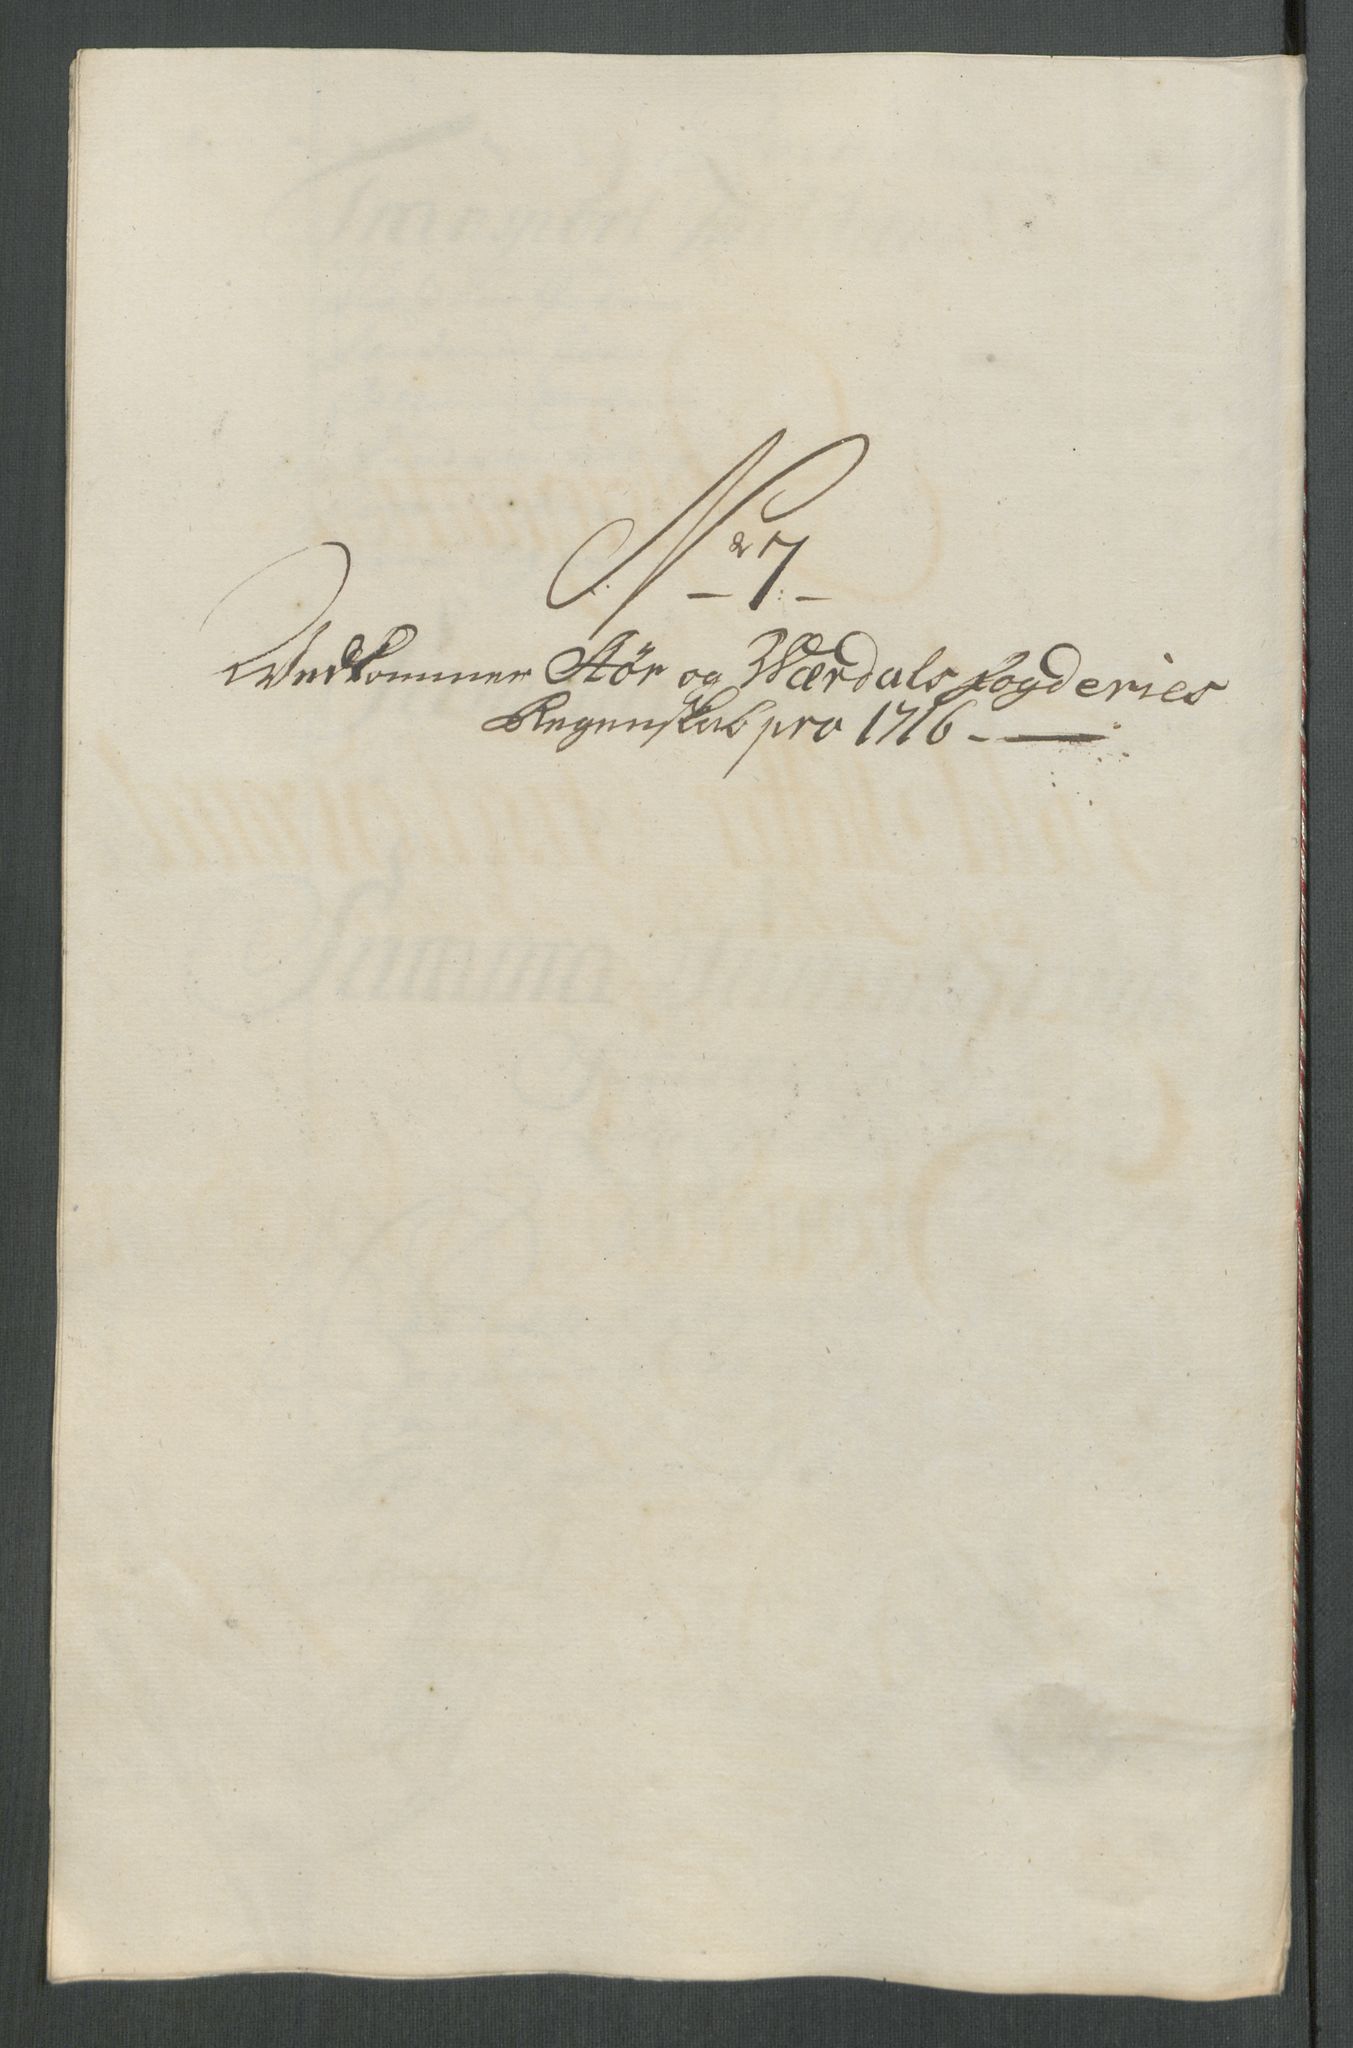 No 7
Vedkommer Stør og Værdals fogderies
Regenskab pro 1716